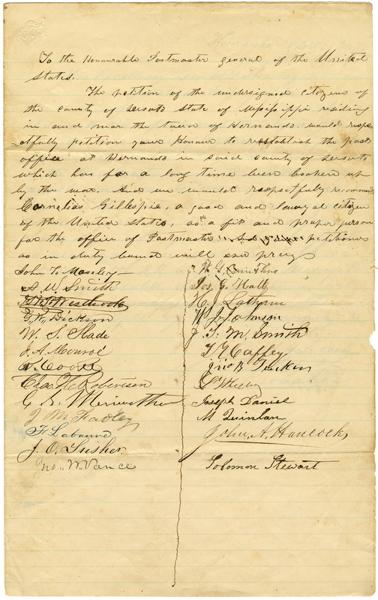 To the Honourable Postmaster general of the United
States.
The petition of the undersigned citizens of
the county of Desoto State of Mississippi residing
in and near the town of Hernando would resp
ectfully petition your Honour to reestablish the post
office at Hernando in said county of Desoto
which has for a long time been broken up
by the war. And we would respectfully recom
Cornelius Gillespie, a good and loyal citizen
of the United States, as a fit and proper person
for the office of Postmaster petitioners
as in duty bound will ever pray
John T. Moseley
A. M. Smith
Dickson
W. S. Slade
J. A. Monroe
Robertson
G. E. Meriwether
J. M. Fadley
F. Labauve
J. O. Lusher
Jno. W. Vance
Jos. G. Hall
Latham
Johnson
J. T. M. Smith
Caffey
Jno. B. Tucker
Joseph Daniel
M Quinlan
John A. Hancock
Solomon Stewart